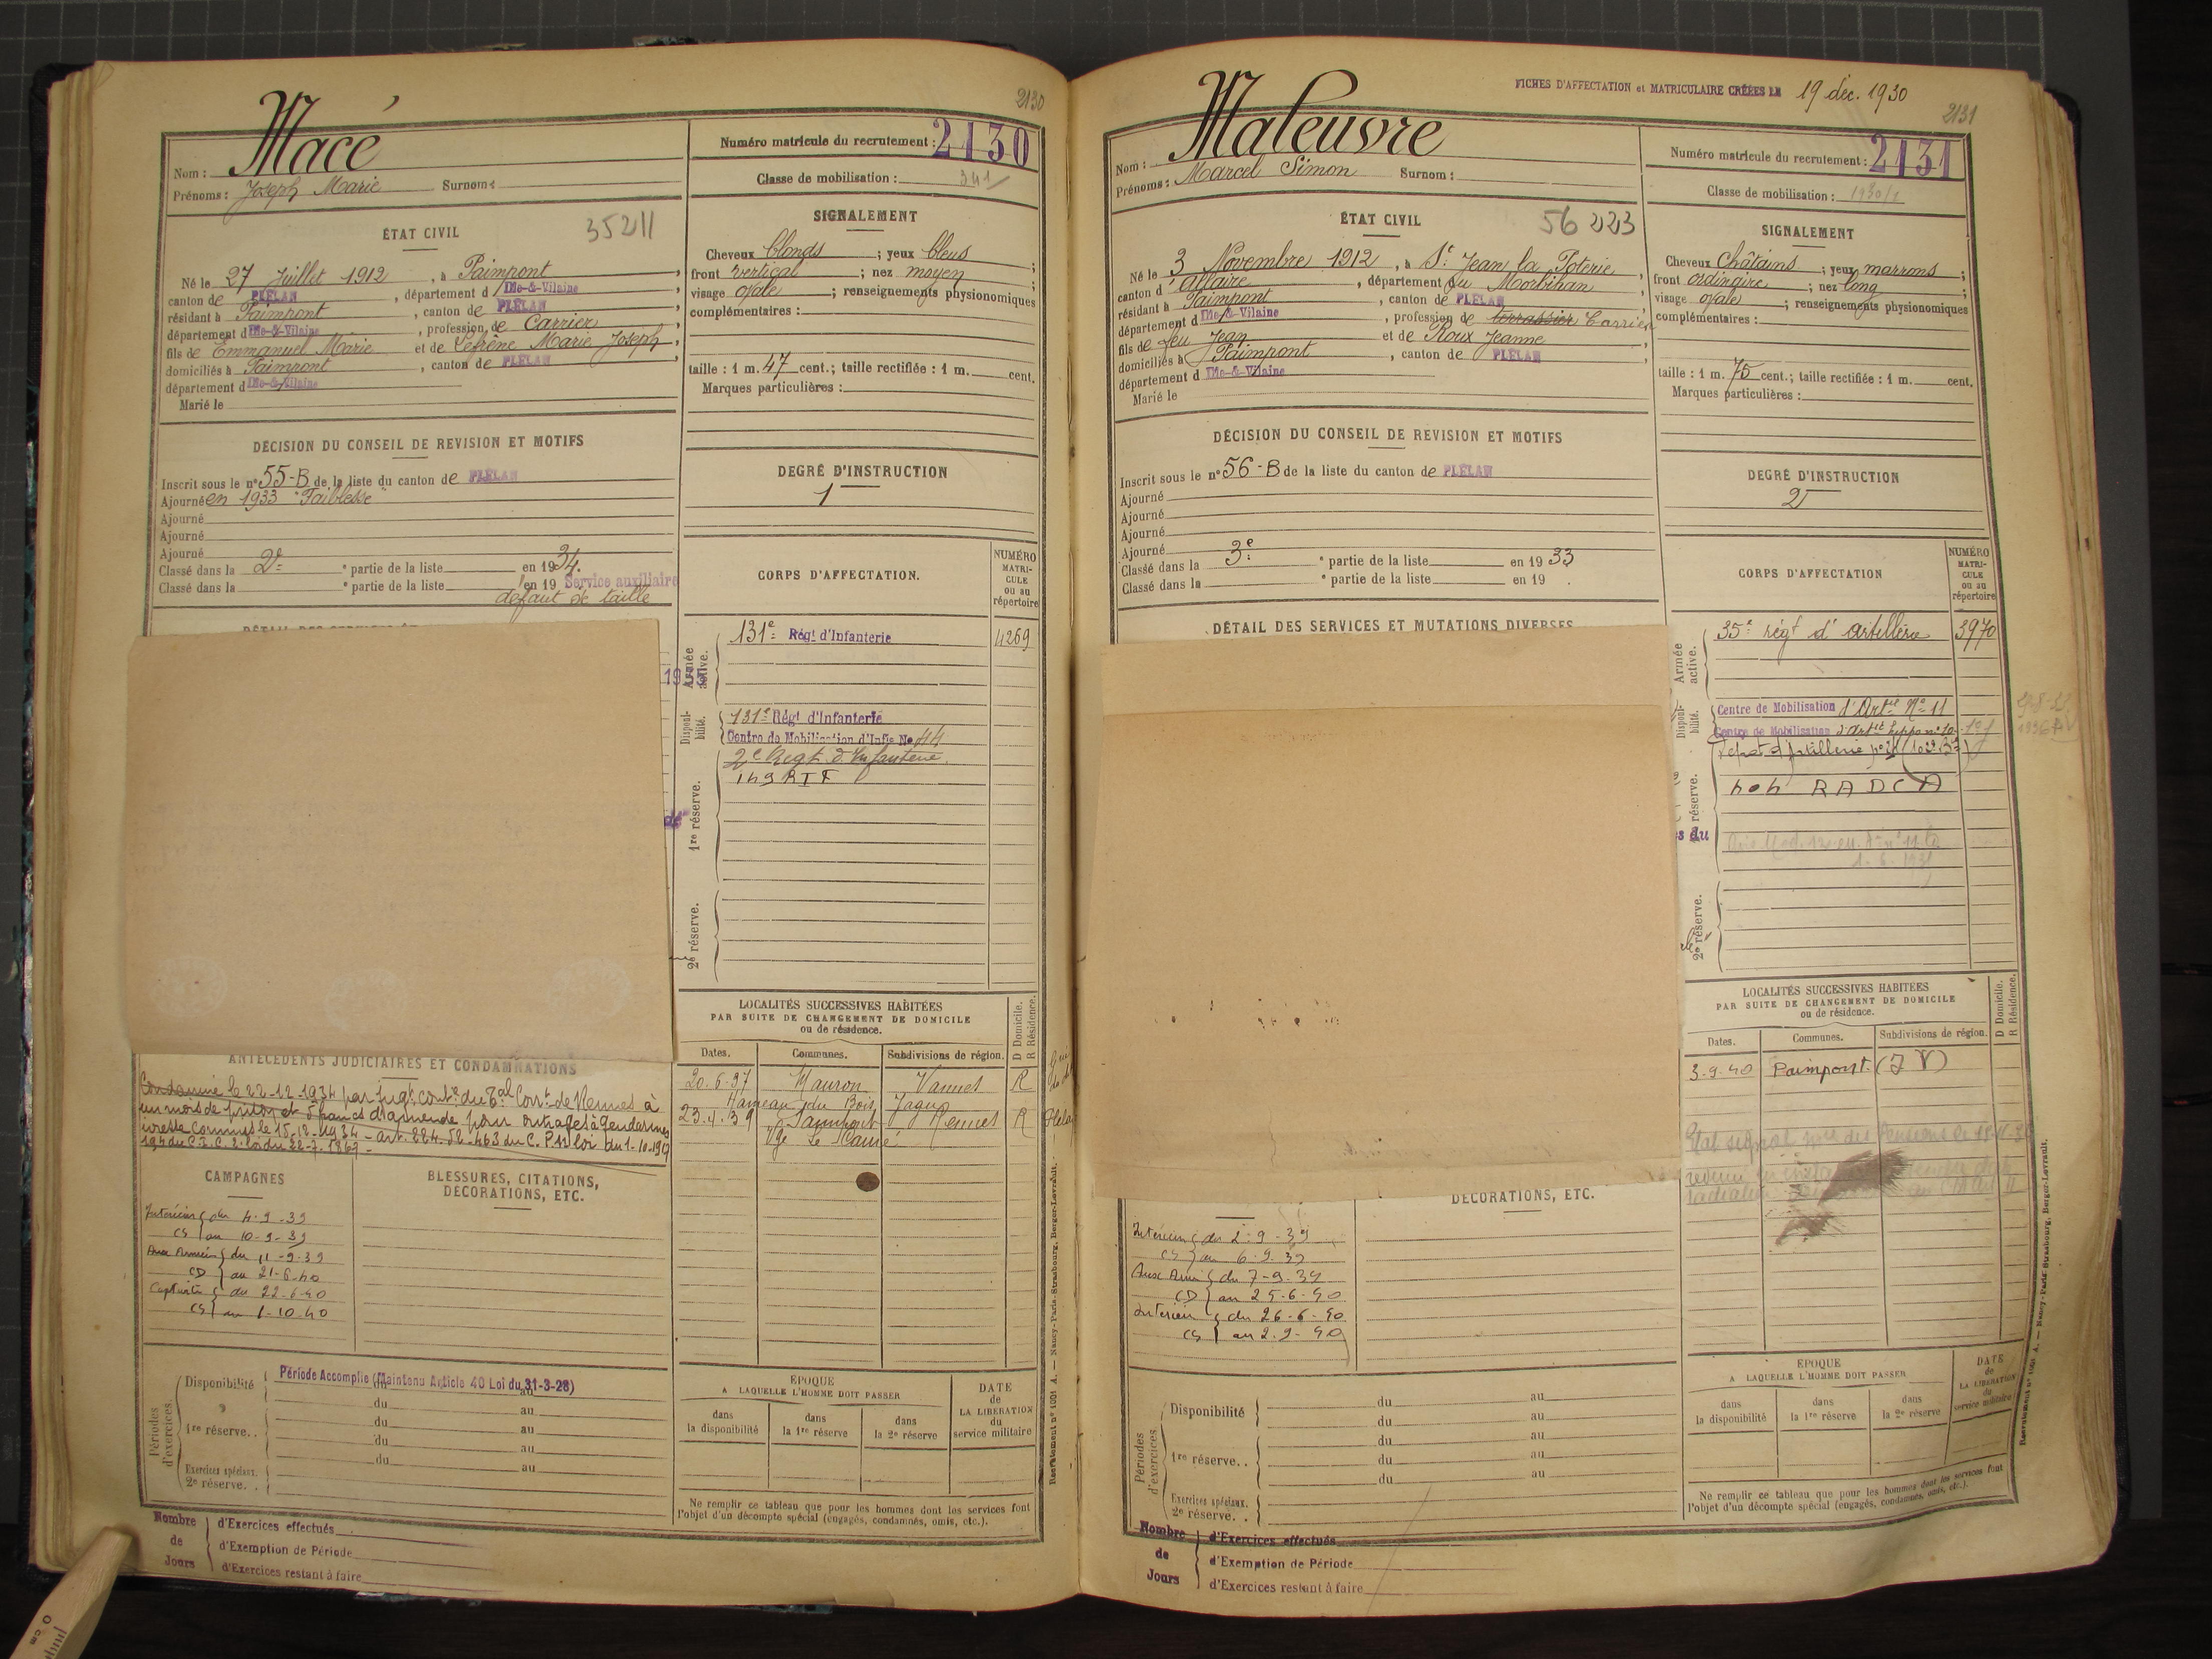 2130
Macé
Nom :
Prénoms : Joseph Marie Surnom :
Numéro matricule du recrutement : 2130
Classe de mobilisation : 34/1
ÉTAT CIVIL
35211
Né le 27 Juillet 1912, à Paimpont,
canton de PLÉLAN, département d Ille-&-Vilaine
résidant à Paimpont, canton de PLÉLAN,
département d Ille-&-Vilaine, profession de Carrier
fils de Emmanuel Marie et de Lefrêne Marie Joseph,
domiciliés à Paimpont, canton de PLÉLAN,
département d Ille-&-Vilaine
Marié le
SIGNALEMENT
Cheveux blonds ; yeux bleus ;
front vertical ; nez moyen ;
visage ovale ; renseignements physionomiques
complémentaires :
taille : 1 m. 47 cent.; taille rectifiée : 1 m. cent.
Marques particulières :
DÉCISION DU CONSEIL DE REVISION ET MOTIFS
Inscrit sous le n° 55-B de la liste du canton de PLÉLAN
Ajourné en 1933 "Faiblesse"
Ajourné
Ajourné
Ajourné
Classé dans la 2e ° partie de la liste en 1934.
Classé dans la ° partie de la liste en 19 Service auxiliaire
défaut de taille
DEGRÉ D'INSTRUCTION
1
CORPS D'AFFECTATION.
NUMÉRO MATRI-CULE ou au répertoire
Armée active.
131e Régt d'Infanterie 4269
Disponi-bilité.
131e Régt d'Infanterie
Centre de Mobilisation d'Infie No 44
1re réserve.
2e Regt d'Infanterie.
149 RIF
2e réserve.
LOCALITÉS SUCCESSIVES HABITÉES
PAR SUITE DE CHANGEMENT DE DOMICILE
ou de résidence.
D Domicile.
R Résidence.
Dates. Communes. Subdivisions de région.
20.6.37 Mauron Vannes R
Hameau du Bois Jagu
23.4.39 Paimpont Rennes R
Vge Le Canné
ANTÉCÉDENTS JUDICIAIRES ET CONDAMNATIONS
Condamné le 22-12-1934 par jugt contre du Bal Corrl de Rennes à
un mois de prison et 5 francs d'amende pour outrages à gendarmes
ivresse commis le 15-12-1934 - art. 224. 52-463 du C.P. loi du 1-10-1917
194 du C.I.C. 2. loi du 22-7-1867 -
CAMPAGNES
BLESSURES, CITATIONS,
DÉCORATIONS, ETC.
Intérieur du 4-9-39
CS au 10-9-39
Aux Armées du 11-9-39
CD au 21-6-40
Captivité du 22-6-40
CS au 1-10-40
Périodes d'exercices.
Disponibilité Période Accomplie (Maintenu Article 40 Loi du 31-3-28)
du au
du au
1re réserve. . du au
du au
du au
Exercices spéciaux.
2e réserve. .
ÉPOQUE
A LAQUELLE L'HOMME DOIT PASSER
dans la disponibilité
dans la 1re réserve
dans la 2e réserve
DATE de LA LIBÉRATION du service militaire
Ne remplir ce tableau que pour les hommes dont les services font
l'objet d'un décompte spécial (engagés, condamnés, omis, etc.).
Recrutement n° 1001 A. — Nancy-Paris-Strasbourg, Berger-Levrault.
Nombre de Jours
d'Exercices effectués
d'Exemption de Période
d'Exercices restant à faire
FICHES D'AFFECTATION et MATRICULAIRE CRÉÉES LE 19 déc. 1930
2131
Maleuvre
Nom :
Prénoms : Marcel Simon Surnom :
Numéro matricule du recrutement : 2131
Classe de mobilisation : 1930/1
ÉTAT CIVIL
56 223
Né le 3 Novembre 1912, à St Jean la Poterie,
canton d'Allaire, département du Morbihan
résidant à Paimpont, canton de PLÉLAN
département d Ille-&-Vilaine, profession de terrassier Carrier
fils de feu Jean et de Roux Jeanne
domiciliés à Paimpont, canton de PLÉLAN
département d Ille-&-Vilaine
Marié le
SIGNALEMENT
Cheveux Châtains ; yeux marrons ;
front ordinaire ; nez long ;
visage ovale ; renseignements physionomiques
complémentaires :
taille : 1 m. 75 cent.; taille rectifiée : 1 m. cent.
Marques particulières :
DÉCISION DU CONSEIL DE REVISION ET MOTIFS
Inscrit sous le n° 56-B de la liste du canton de PLÉLAN
Ajourné
Ajourné
Ajourné
Ajourné
Classé dans la 3e ° partie de la liste en 1933
Classé dans la ° partie de la liste en 19 .
DÉTAIL DES SERVICES ET MUTATIONS DIVERSES
DEGRÉ D'INSTRUCTION
2
CORPS D'AFFECTATION
NUMÉRO MATRI-CULE ou au répertoire
Armée active.
35e régt d'artillerie 3970
Disponi-bilité.
Centre de Mobilisation d'Artie No 11
Centre de Mobilisation d'Artie hippo n° 10
Dépot d'Artillerie
réserve.
404 RADCA
s du
2e réserve.
LOCALITÉS SUCCESSIVES HABITÉES
PAR SUITE DE CHANGEMENT DE DOMICILE
ou de résidence.
D Domicile.
R Résidence.
Dates. Communes. Subdivisions de région.
3-9-40 Paimpont (I V)
DÉCORATIONS, ETC.
Intérieur du 2-9-39
CS au 6-9-39
Aux Armées du 7-9-39
CD au 25-6-40
Intérieur du 26-6-40
CS au 2-9-40
Périodes d'exercices.
Disponibilité du au
du au
du au
1re réserve. . du au
du au
Exercices spéciaux.
2e réserve. .
ÉPOQUE
A LAQUELLE L'HOMME DOIT PASSER
dans la disponibilité
dans la 1re réserve
dans la 2e réserve
DATE de LA LIBÉRATION du service militaire
Ne remplir ce tableau que pour les hommes dont les services font
l'objet d'un décompte spécial (engagés, condamnés, omis, etc.).
Recrutement n° 1001 A. — Nancy-Paris-Strasbourg, Berger-Levrault.
Nombre de Jours
d'Exercices effectués
d'Exemption de Période
d'Exercices restant à faire
0 cm